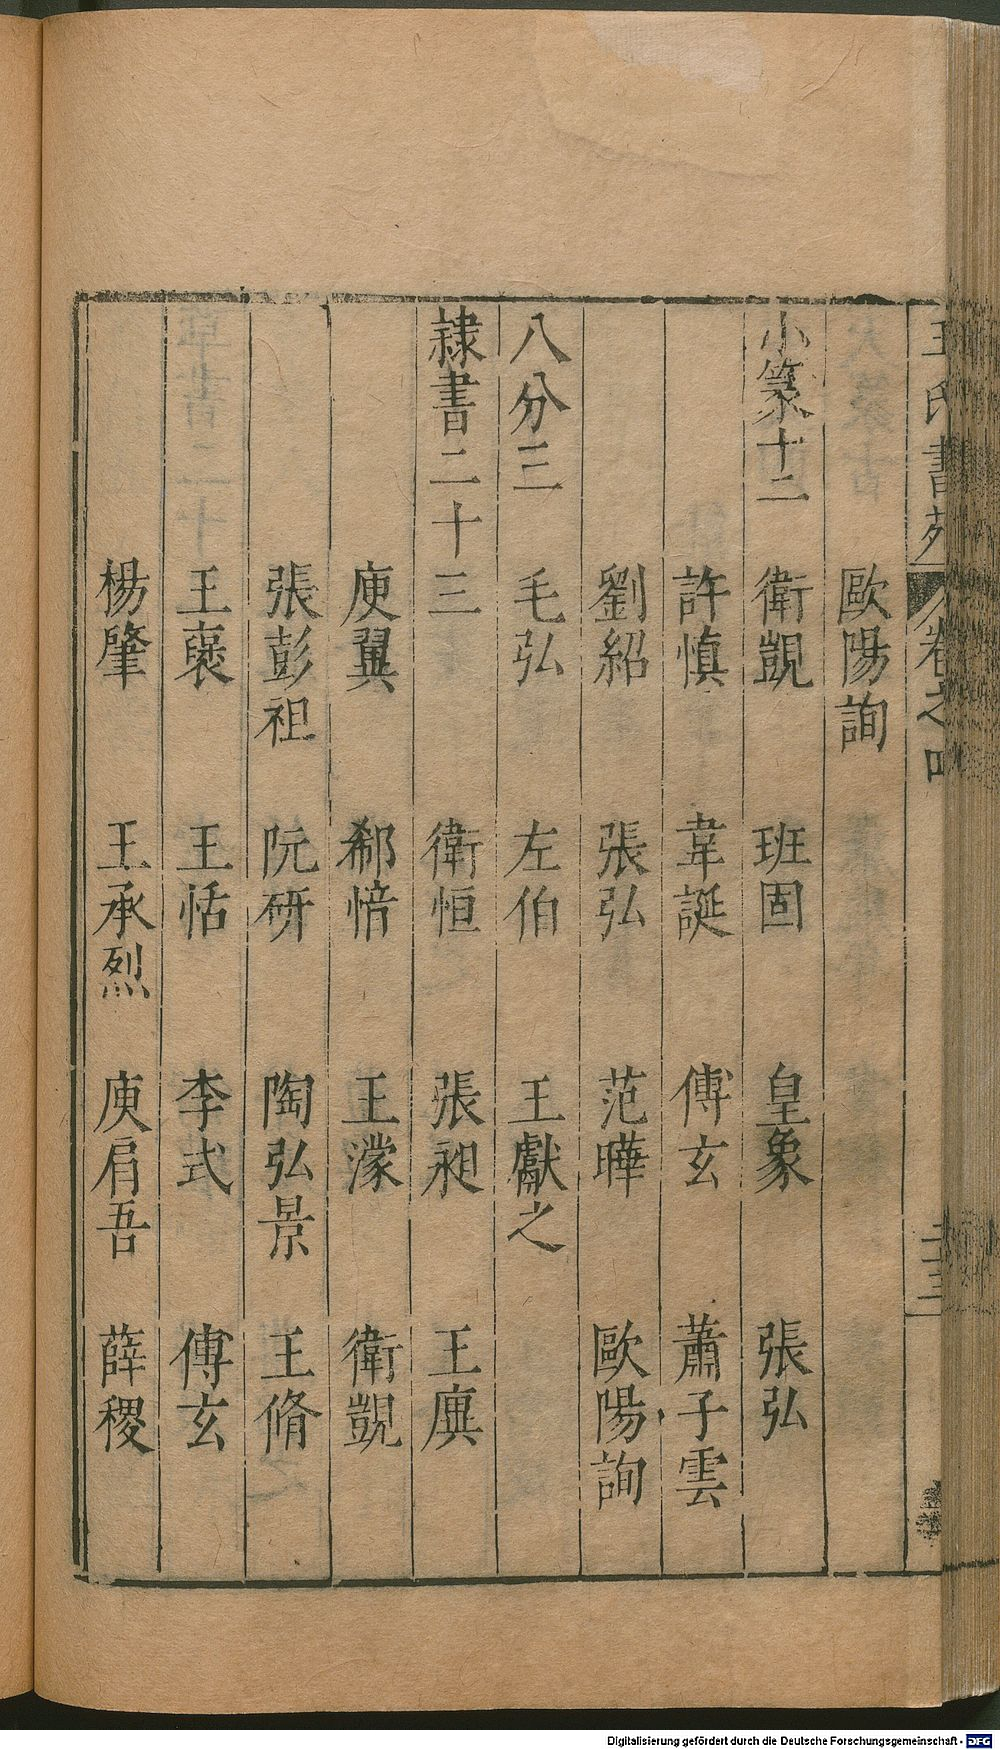 王氏書苑 卷之四
歐陽詢
小篆十二 衛覬 班固 皇象 張弘
許慎 韋誕 傅玄 蕭子雲
劉紹 張弘 范曄 歐陽詢
八分三 毛弘 左伯 王獻之
隸書二十三 衛恒 張昶 王廙
庾翼 郗愔 王濛 衛覬
張彭祖 阮研 陶弘景 王脩
王裒 王恬 李式 傅玄
楊肇 王承烈 庾肩吾 薛稷
Digitalisierung gefördert durch die Deutsche Forschungsgemeinschaft - DFG